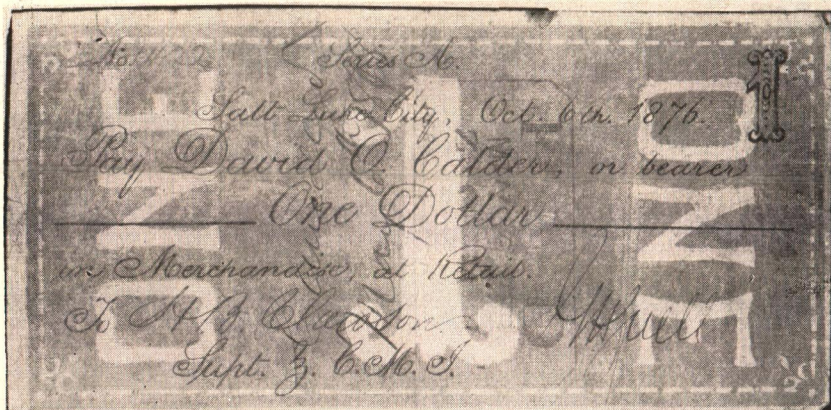 Series A.
Salt Lake City, Oct. 6th. 1876.
Pay David O. Calder, or bearer
One Dollar
in Merchandise, at Retail.
To H B Clawson
Supt. Z. C. M. I.
ONE
1
ONE
1